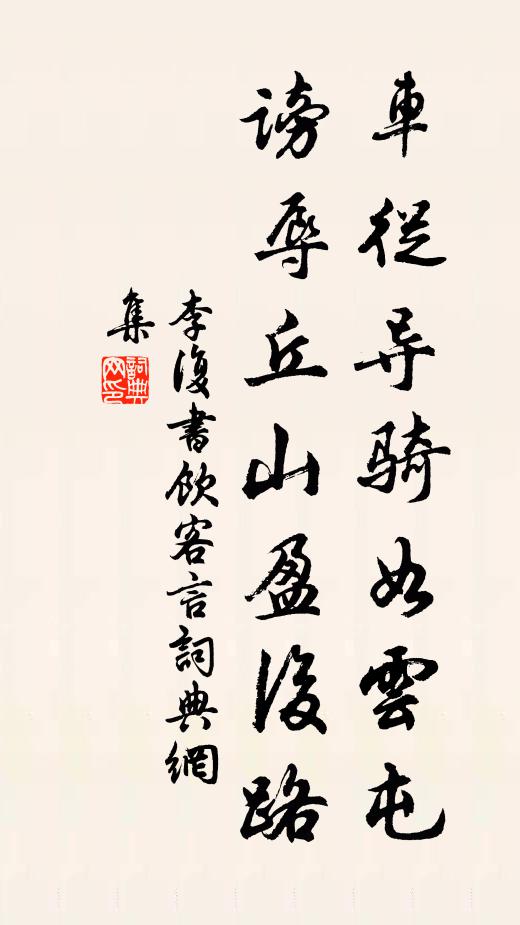 車從导骑如雲屯
謗辱丘山盈後路
李復書飲客言詞典網
集
詞典
网印